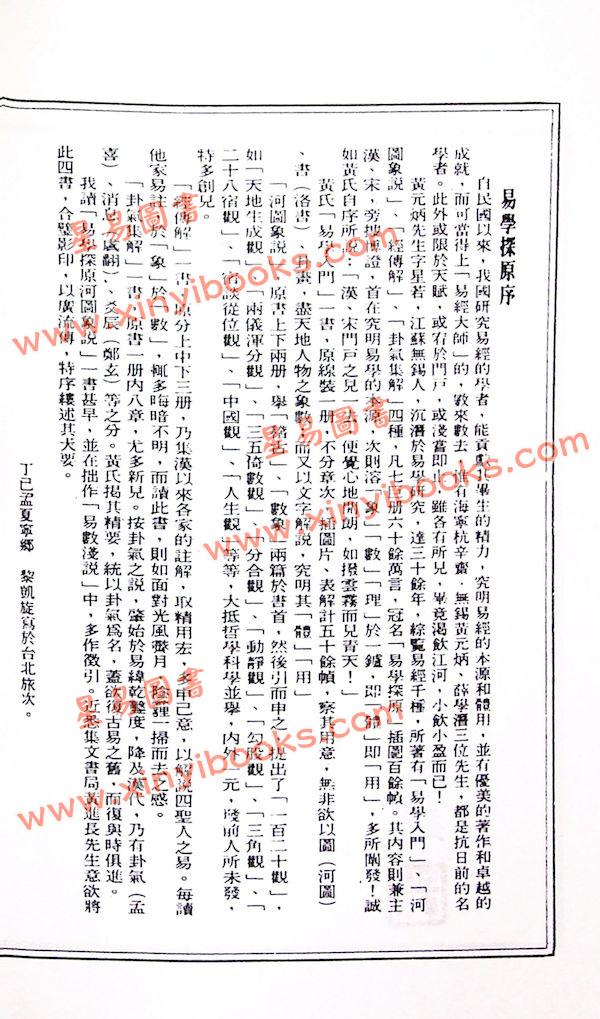 易學探原序
自民國以來，我國研究易經的學者，能貢獻畢生的精力，究明易經的本源和體用，並有優美的著作和卓越的
成就，而可當得上「易經大師」的，數來數去，惟有海寧杭辛齋、無錫黃元炳、薛學潛三位先生，都是抗日前的名
學者。此外或限於天賦，或宥於門戶，或淺嘗即止，雖各有所見，畢竟渴飲江河，小飲小盈而已！
黃元炳先生字星若，江蘇無錫人，沉潛於易學研究，達三十餘年，綜覽易經千種，所著有「易學入門」、「河
圖象說」、「經傳解」、「卦氣集解」四種，凡七册六十餘萬言，冠名「易學探原」，插圖百餘幀。其內容則兼主
漢、宋，旁搜博證，首在究明易學的本源，次則溶「象」「數」「理」於一鑪，即「體」即「用」，多所闡發！誠
如黃氏自序所說：「漢、宋門戶之見一去，便覺心地開朗，如撥雲霧而見青天！」
黃氏「易學入門」一書，原線裝一册，不分章次，插圖片、表解計五十餘幀，察其用意，無非欲以圖（河圖）
、書（洛書）、卦畫，盡天地人物之象數，而又以文字解說，究明其「體」「用」
「河圖象說」原書上下兩册，舉「稽古」、「數象」兩篇於書首，然後引而申之，提出了「一百二十觀」，
如「天地生成觀」、「兩儀渾分觀」、「三五倚數觀」、「分合觀」、「動靜觀」、「勾股觀」、「三角觀」、「
二十八宿觀」、「談從位觀」、「中國觀」、「人生觀」等等，大抵哲學科學並舉，內外一元，發前人所未發，
特多創見。
「經傳解」一書，原分上中下三册，乃集漢以來各家的註解，取精用宏，多申己意，以解說四聖人之易。每讀
他家易註，於「象」於「數」，輒多晦暗不明，而讀此書，則如面對光風霽月，陰霾一掃而去之感。
「卦氣集解」一書，原書一册內八章，尤多新見。按卦氣之說，肇始於易緯乾鑿度，降及漢代，乃有卦氣（孟
喜）、消息（虞翻）、爻辰（鄭玄）等之分。黃氏揭其精要，統以卦氣爲名，蓋欲復古易之舊，而復與時俱進。
我讀「易學探原河圖象說」一書甚早，並在拙作「易數淺說」中，多作徵引。近悉集文書局黃進長先生意欲將
此四書，合璧影印，以廣流傳，特序縷述其大要。
丁巳孟夏寧鄉　黎凱旋寫於台北旅次。
星易圖書
www.xinyibooks.com
星易圖書
www.xinyibooks.com
星易圖書
www.xinyibooks.com